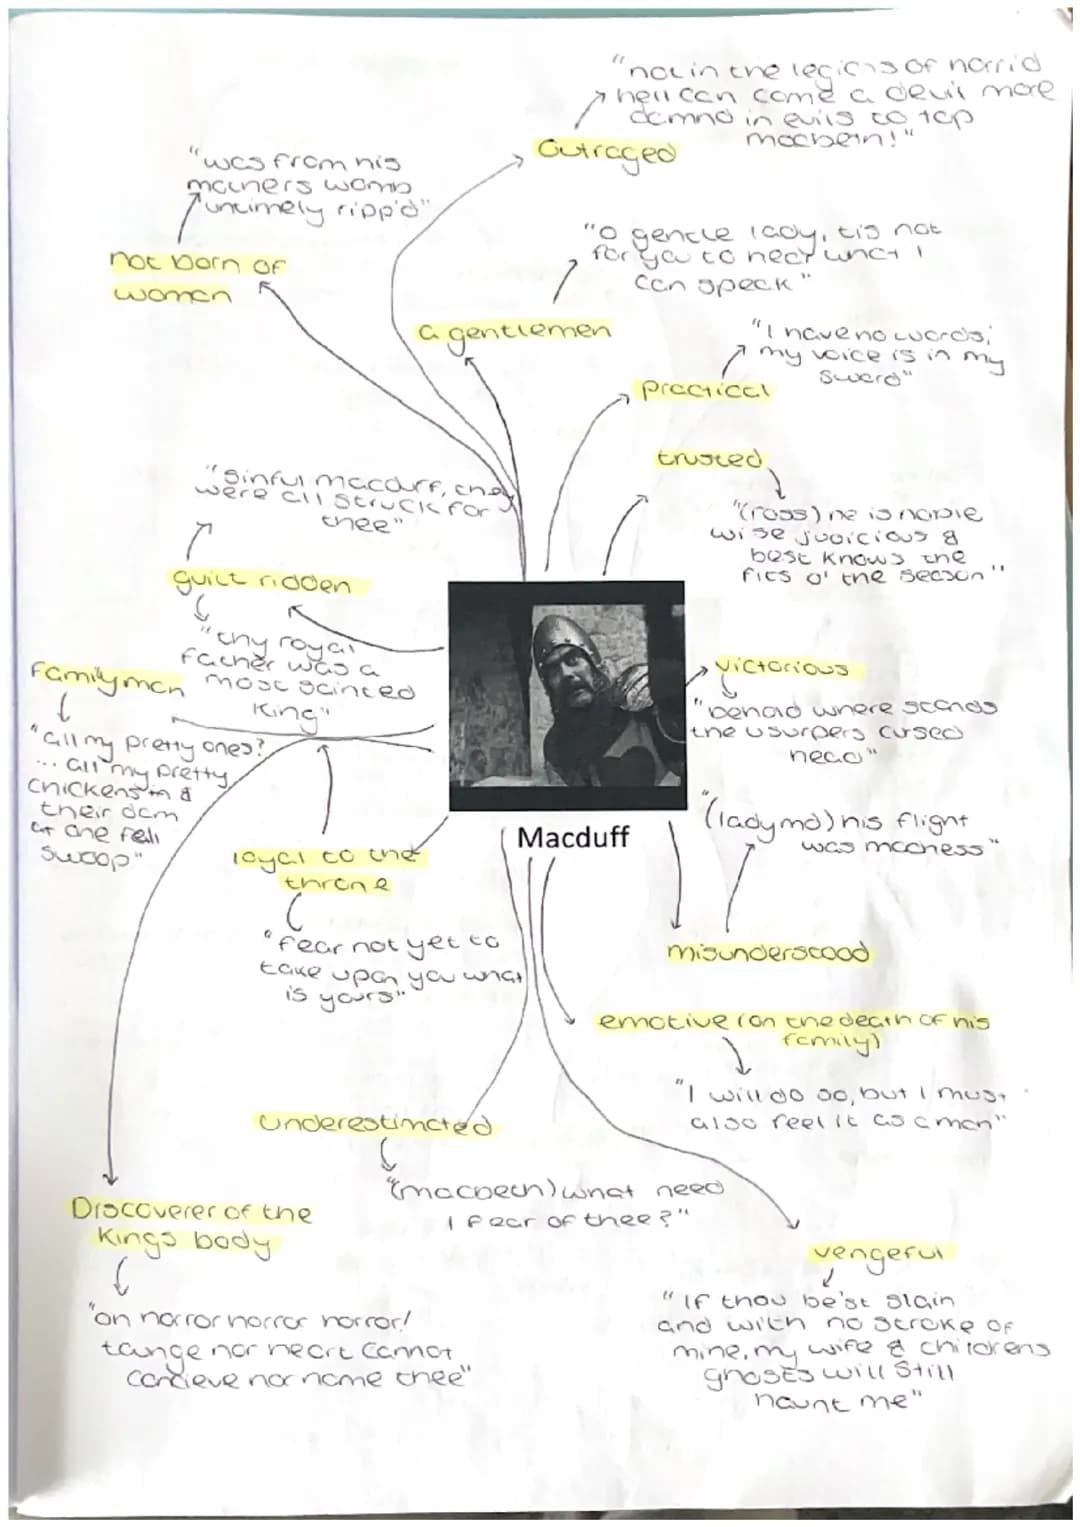 "not in the legions of horrid
hell can come a devil more
damnd in evils to top
macbeth!"
Outraged
"was from his
mothers womb
untimely ripp'd"
not born of
woman
"O gentle lady, tis not
for you to hear what I
can speak"
a gentlemen
"I have no words;
my voice is in my
sword"
practical
trusted
"(ross) he is noble
wise judicious &
best knows the
fits o' the season"
"sinful macduff, they
were all struck for
thee"
guilt ridden
"thy royal
father was a
most sainted
king"
family man
"all my pretty ones?
... all my pretty
chickens &
their dam
at one fell
swoop"
victorious
"behold where stands
the usurpers cursed
head"
Macduff
"(lady md) his flight
was madness"
misunderstood
loyal to the
throne
"fear not yet to
take upon you what
is yours"
emotive (on the death of his
family)
"I will do so, but I must
also feel it as a man"
underestimated
"(macbeth) what need
I fear of thee?"
Discoverer of the
Kings body
"oh horror horror horror!
tounge nor heart cannot
concieve nor name thee"
vengeful
"If thou be'st slain
and with no stroke of
mine, my wife & childrens
ghosts will still
haunt me"